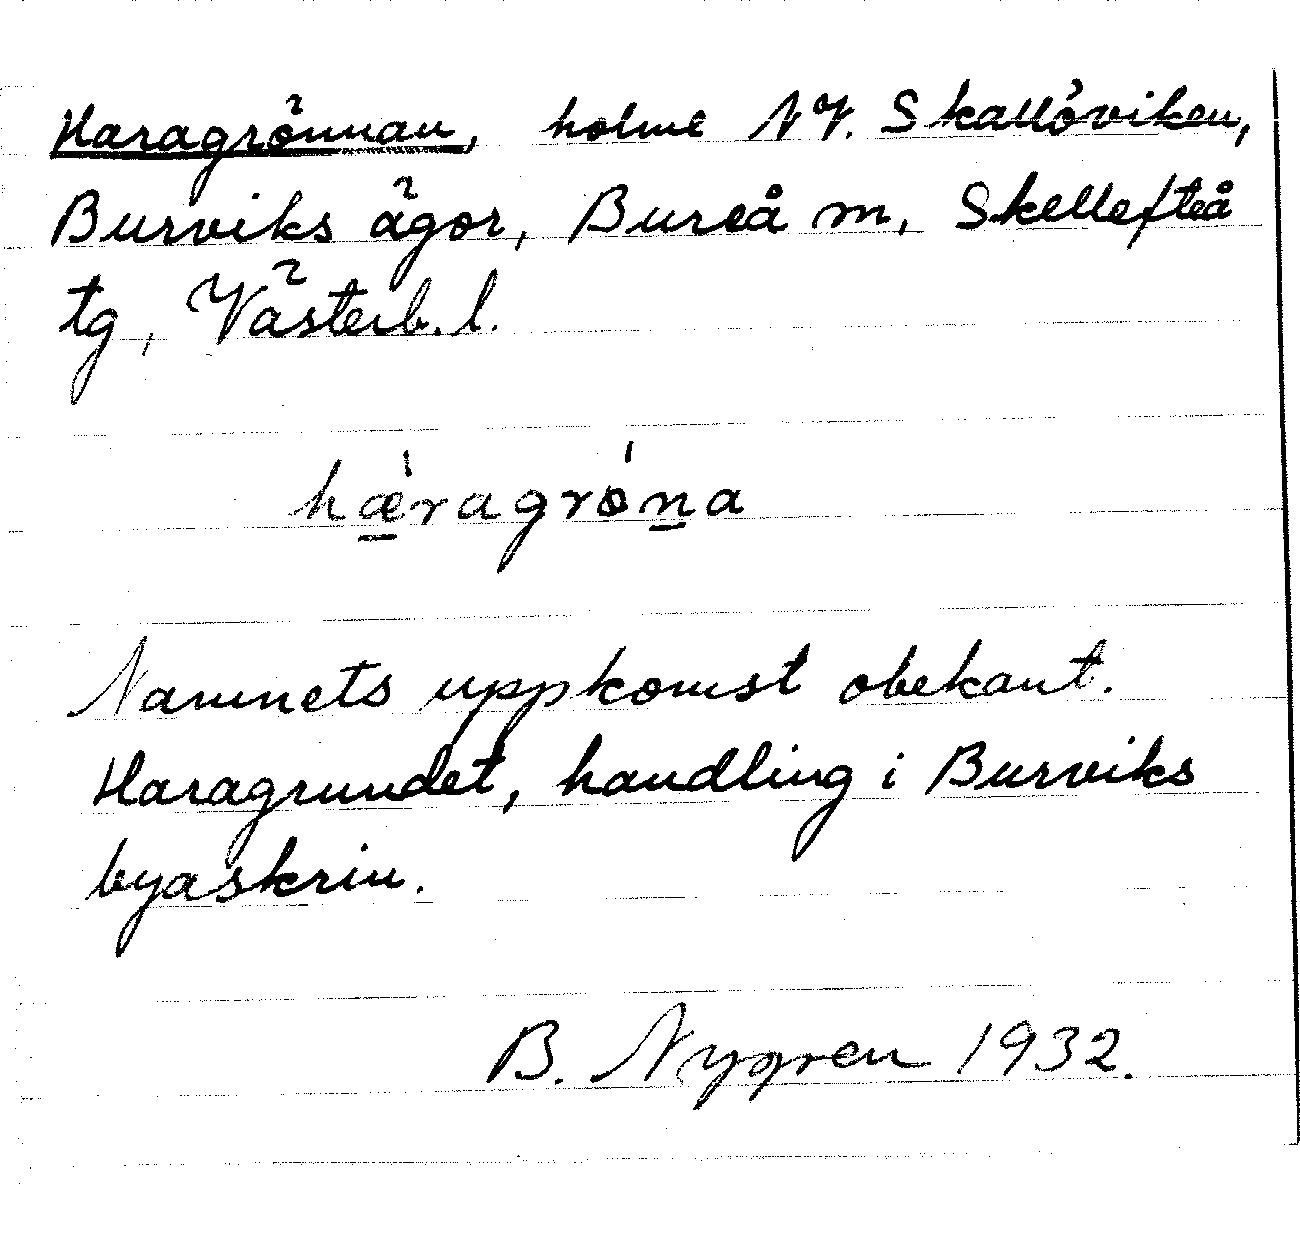 Haragrönnan, holme NV. Skallöviken,
Burviks ägor, Bureå sn, Skellefteå
tg, Västerb. l.
hǽ̲ragrón̲a
Namnets uppkomst obekant.
Haragrundet, handling i Burviks
byaskrin.
B. Nygren 1932.